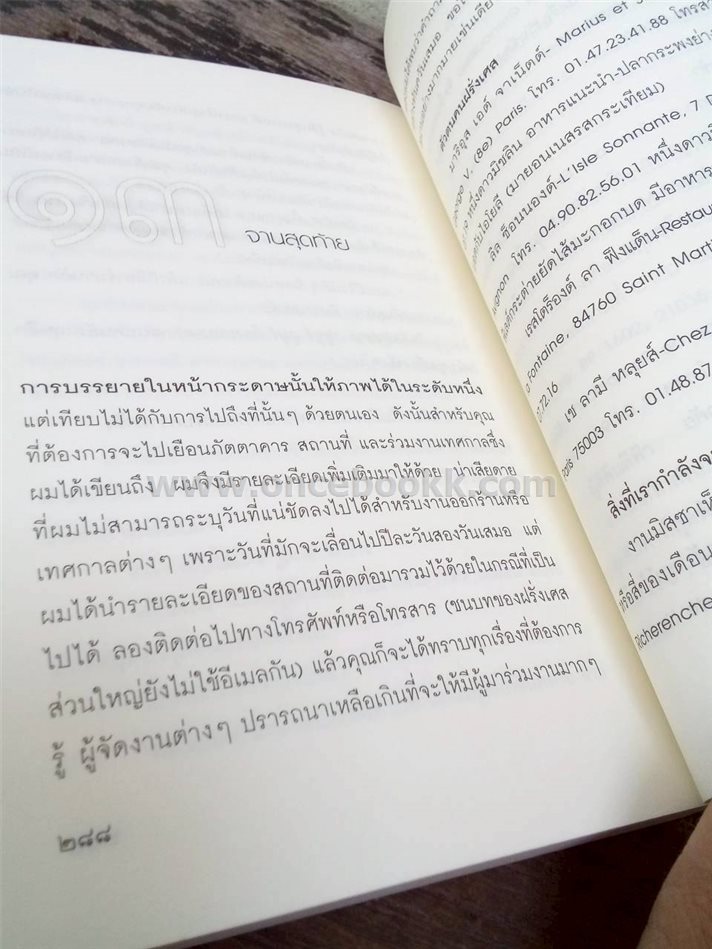 ๑๓
จานสุดท้าย
การบรรยายในหน้ากระดาษนั้นให้ภาพได้ในระดับหนึ่ง
แต่เทียบไม่ได้กับการไปถึงที่นั้นๆ ด้วยตนเอง ดังนั้นสำหรับคุณ
ที่ต้องการจะไปเยือนภัตตาคาร สถานที่ และร่วมงานเทศกาลซึ่ง
ผมได้เขียนถึง ผมจึงมีรายละเอียดเพิ่มเติมมาให้ด้วย น่าเสียดาย
ที่ผมไม่สามารถระบุวันที่แน่ชัดลงไปได้สำหรับงานออกร้านหรือ
เทศกาลต่างๆ เพราะวันที่มักจะเลื่อนไปปีละวันสองวันเสมอ แต่
ผมได้นำรายละเอียดของสถานที่ติดต่อมารวมไว้ด้วยในกรณีที่เป็น
ไปได้ ลองติดต่อไปทางโทรศัพท์หรือโทรสาร (ชนบทของฝรั่งเศส
ส่วนใหญ่ยังไม่ใช้อีเมลกัน) แล้วคุณก็จะได้ทราบทุกเรื่องที่ต้องการ
รู้ ผู้จัดงานต่างๆ ปรารถนาเหลือเกินที่จะให้มีผู้มาร่วมงานมากๆ
๒๘๘
www.oncebookk.com
มาริอุส เอต์ จาเน็ตต์- Marius et
V. (8e) Paris. โทร. 01.47.23.41.88 โทรสา
หนึ่งดาวมิชลิน อาหารแนะนำ-ปลากระพงย่าง
(มายองเนสรสกระเทียม)
ลิล ซ็อนนองต์-L'Isle Sonnante, 7
โทร. 04.90.82.56.01 หนึ่งดาวมิ
มีอาหาร
เรสโตร็องต์ ลา ฟ็งแต็น-Restau
Fontaine, 84760 Saint Marti
เช ลามี หลุยส์-Chez
Paris 75003 โทร. 01.48.87
สิ่งที่เรากำลังจะ
งานมิสซาเห็
หรือสี่ของเดือน
Richerenche